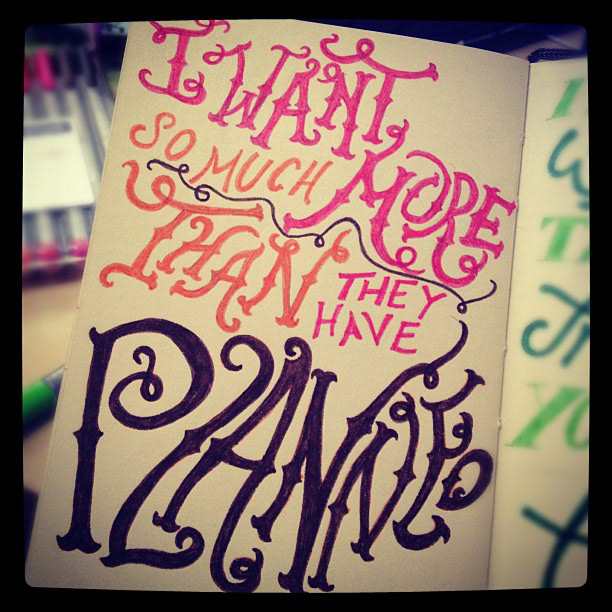 I WANT
SO MUCH MORE
THAN THEY
HAVE
PLANNED